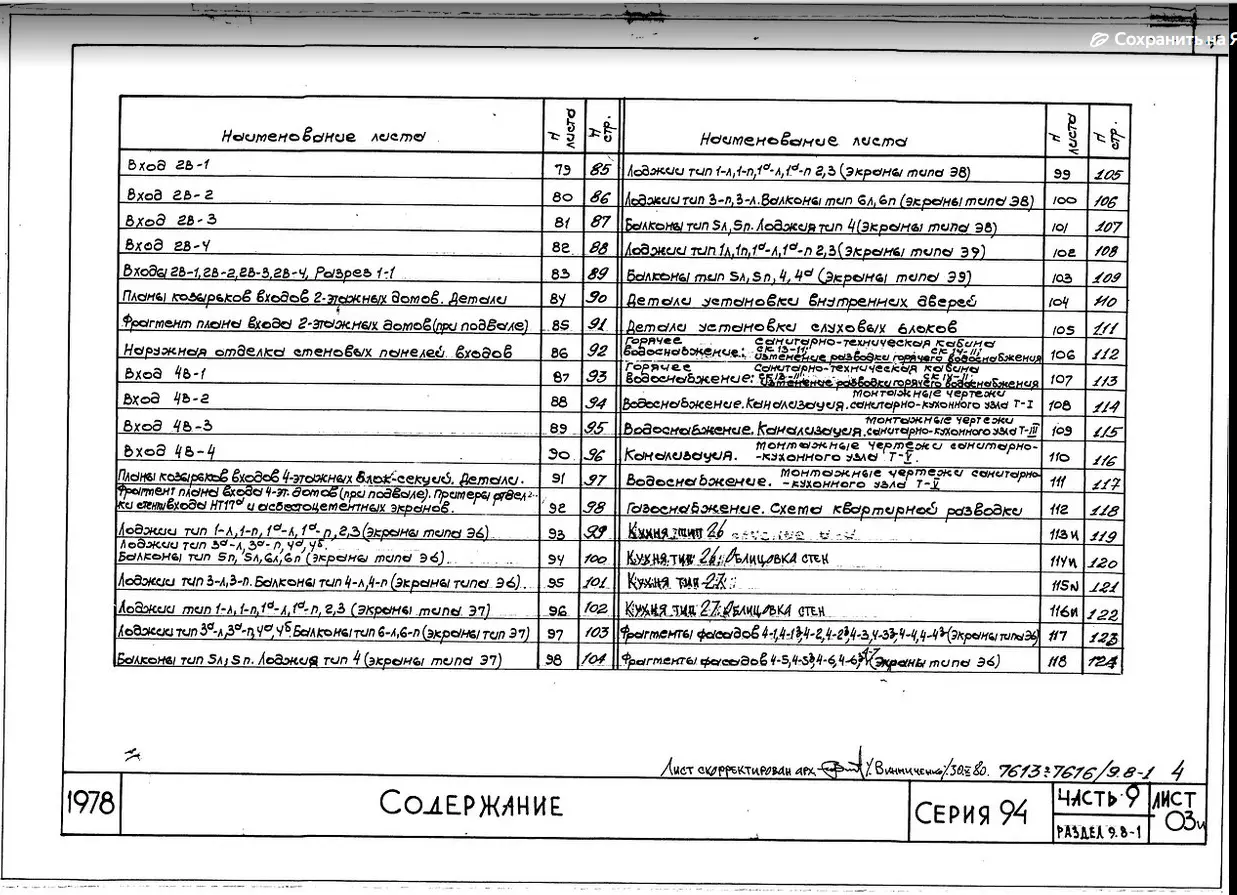 Сохранить на Я
Наименование листа N листа N стр.
Вход 2В-1 79 85
Вход 2В-2 80 86
Вход 2В-3 81 87
Вход 2В-4 82 88
Входы 2В-1,2В-2,2В-3,2В-4, Разрез 1-1 83 89
Планы козырьков входов 2-этажных домов. Детали 84 90
Фрагмент плана входа 2-этажных домов(при подвале) 85 91
Наружная отделка стеновых панелей входов 86 92
Вход 4В-1 87 93
Вход 4В-2 88 94
Вход 4В-3 89 95
Вход 4В-4 90 96
Планы козырьков входов 4-этажных блок-секций. Детали. 91 97
Фрагмент плана входа 4-эт. домов(при подвале). Примеры отдел-
ки стены входа НТ17д и асбестоцементных экранов. 92 98
Лоджии тип 1-л,1-п,1д-л,1д-п,2,3(экраны типа Э6) 93 99
Лоджии тип 3д-л,3д-п,4д,4б.
Балконы тип 5п, 5л,6л,6п(экраны типа Э6) 94 100
Лоджии тип 3-л,3-п.Балконы тип 4-л,4-п(экраны типа Э6) 95 101
Лоджии тип 1-л,1-п,1д-л,1д-п,2,3 (экраны типа Э7) 96 102
Лоджии тип 3д-л,3д-п,4д,4б.Балконы тип 6-л,6-п(экраны тип Э7) 97 103
Балконы тип 5л,5п. Лоджия тип 4(экраны типа Э7) 98 104
Наименование листа N листа N стр.
Лоджии тип 1-л,1-п,1д-л,1д-п 2,3(экраны типа Э8) 99 105
Лоджии тип 3-п,3-л.Балконы тип 6л,6п (экраны типа Э8) 100 106
Балконы тип 5л,5п. Лоджия тип 4(экраны типа Э8) 101 107
Лоджии тип 1л,1п,1д-л,1д-п 2,3(экраны типа Э9) 102 108
Балконы тип 5л,5п,4,4д (экраны типа Э9) 103 109
Детали установки внутренних дверей 104 110
Детали установки слуховых блоков 105 111
Горячее санитарно-техническая кабина
водоснабжение: СК 13-11; СК 14-11; изменение разводки горячего водоснабжения 106 112
Горячее Санитарно-техническая кабина
водоснабжение: изменение разводки горячего водоснабжения 107 113
монтажные чертежи
Водоснабжение.Канализация.санитарно-кухонного узла Т-I 108 114
монтажные чертежи
Водоснабжение.Канализация.санитарно-кухонного узла Т-III 109 115
монтажные чертежи санитарно-
Канализация. -кухонного узла Т-V 110 116
монтажные чертежи санитарно
Водоснабжение. -кухонного узла Т-V 111 117
Газоснабжение. Схема квартирной разводки 112 118
Кухня тип 26 113и 119
Кухня тип 26. Облицовка стен 114и 120
Кухня тип 27. 115и 121
Кухня тип 27. Облицовка стен 116и 122
Фрагменты фасадов 4-1,4-1д,4-2,4-2д,4-3,4-3д,4-4,4-4д(экраны типа Э6) 117 123
Фрагменты фасадов 4-5,4-5д,4-6,4-6д,4-7(экраны типа Э6) 118 124
Лист скорректирован арх. /Винниченко/ 80. 7613÷7616/9.8-1 4
1978 Содержание Серия 94 Часть 9 Лист
Раздел 9.8-1 03и